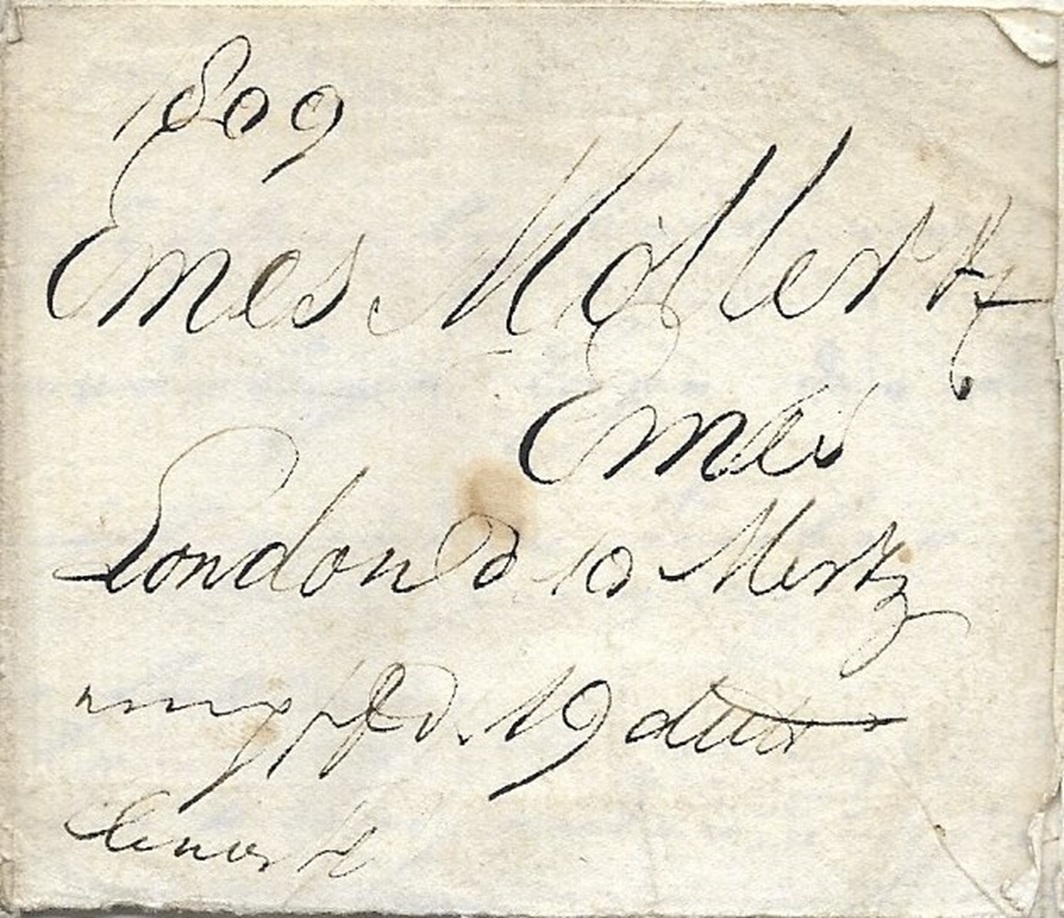 1809
Emes Möller
Emes
London d 10 Mertz
empfd. 19 ditto